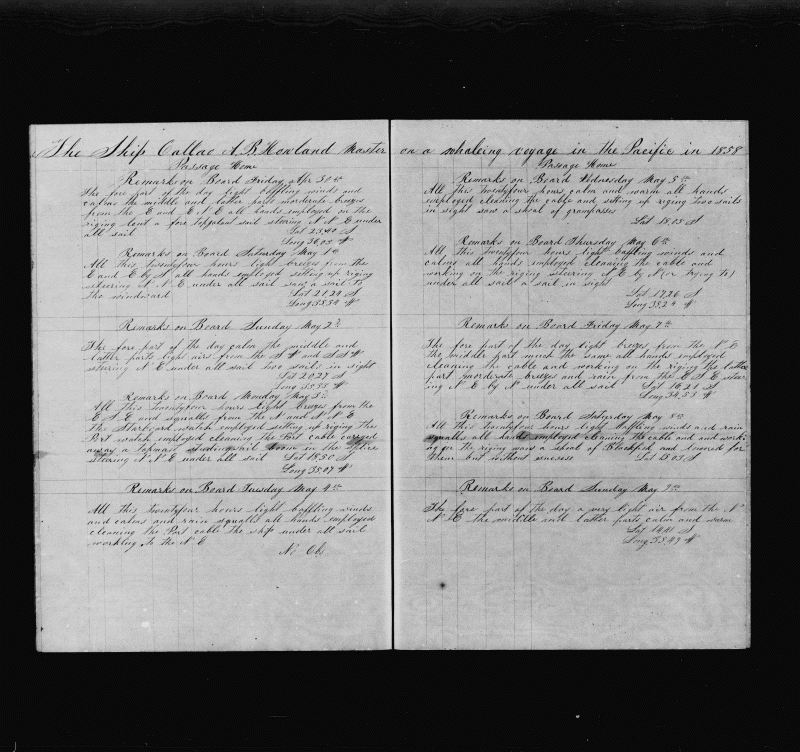 The Ship Callao A. B. Howland Master
Passage Home
Remarks on Board Friday Apr 30th
The fore part of the day light baffling winds and
calms the middle and latter parts morderate breezes
from the E and E N E all hands employed on the
riging bent a fore topgalant sail steering N N E under
all sail Lat 23,40 S
Long 36,05 W
Remarks on Board Saturday May 1st
All This twentyfour hours light breezes from the
E and E by S all hands employed setting up riging
steering N N E under all sail saw a sail to
the windward Lat 21,24 S
Long 35,54 W
Remarks on Board Sunday May 2d
The fore part of the day calm the middle and
latter parts light airs from the S W and S S W
steering N E under all sail two sails in sight
Lat 20,27 S
Long 35,55 W
Remarks on Board Monday May 3d
All this twentyfour hours light breezes from the
E S E and squalls from the N and N N E
The Starboard watch employed setting up riging The
Port watch employed cleaning the Port cable carried
away a topmast studingsail boom in the
steering N N E under all sail Lat 18,50 S
Long 35,07 W
Remarks on Board Tuesday May 4th
All This twentyfour hours light baffling winds
and calms and rain squalls all hands employed
cleaning the Port cable the ship under all sail
working to the N E
No Ob
on a whaleing voyage in the Pacific in 1858
Passage Home
Remarks on Board Wednesday May 5th
All This twentyfour hours calm and warm all hands
employed cleaning the cable and setting up riging two sails
in sight saw a shoal of grampases
Lat 18,05 S
Remarks on Board Thursday May 6th
All this twentyfour hours light baffling winds and
calms all hands employed cleaning the cable and
working on the riging steering N E by N (or trying to)
under all sail a sail in sight
Lat 17,26 S
Long 35,24 W
Remarks on Board Friday May 7th
The fore part of the day light breezes from the N E
the middle part much the same all hands employed
cleaning the cable and working on the riging the latter
part morderate breezes and rain from the E S E steer
ing N E by N under all sail Lat 16,21 S
Long 34,53 W
Remarks on Board Saturday May 8th
All This twentyfour hours light baffling winds and rain
squalls all hands employed cleaning the cable and and work
ing on the riging saw a shoal of Blackfish and lowered for
them but without success Lat 15,03 S
Remarks on Board Sunday May 9th
The fore part of the day a very light air from the N
N E the middle and latter parts calm and warm
Lat 14,41 S
Long 33,49 W